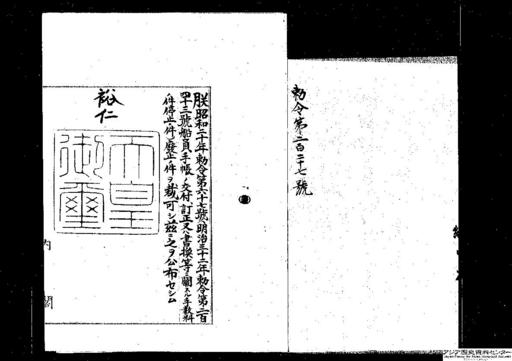 勅令第二百二十七號
朕昭和二十年勅令第六十七號、明治三十二年勅令第二百
四十三號船員手帳ノ交付訂正又ハ書換等ニ關スル手數料
ノ件停止ノ件廢止ノ件ヲ裁可シ茲ニ之ヲ公布セシム
裕仁
天皇
御璽
内閣
アジア歴史資料センター